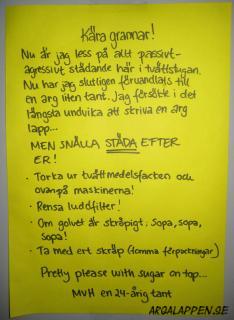 Kära grannar!
Nu är jag less på allt passivt-
agressivt städande här i tvättstugan.
Nu har jag slutligen förvandlats till
en arg liten tant. Jag försökte i det
längsta undvika att skriva en arg
lapp...
MEN SNÄLLA STÄDA EFTER
ER!
• Torka ur tvättmedelsfacken och
ovanpå maskinerna!
• Rensa luddfilter!
• Om golvet är skräpigt. Sopa, sopa,
sopa!
• Ta med ert skräp (tomma förpackningar)
Pretty please with sugar on top...
MVH en 24-årig tant
ARGALAPPEN.SE